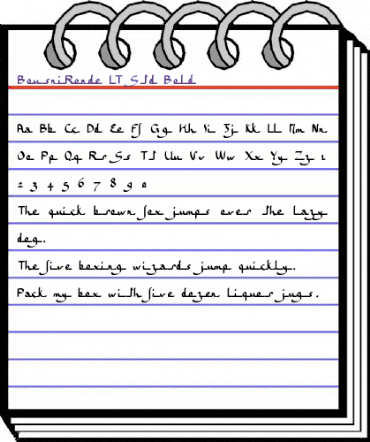 BousniRonde LT Std Bold
Aa Bb Cc Dd Ee Ff Gg Hh Ii Jj Kk Ll Mm Nn
Oo Pp Qq Rr Ss Tt Uu Vv Ww Xx Yy Zz 1
2 3 4 5 6 7 8 9 0
The quick brown fox jumps over the lazy
dog.
The five boxing wizards jump quickly.
Pack my box with five dozen liquor jugs.